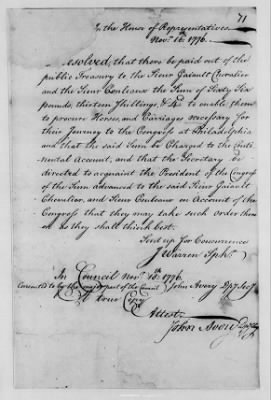 71
In the House of Representatives
Novr. 16. 1776.
Resolved, that there be paid out of the
public Treasury to the Sieur Gaiault Chevalier
and the Sieur Conleaux the Sum of Sixty Six
pounds, thirteen Shillings, & 4d to enable them
to procure Horses, and Carriages necessary for
their Journey to the Congress at Philadelphia
and that the said Sum be Charged to the Conti-
nental Account, and that the Secretary be
directed to acquaint the President of the Congress
of the Sum advanced to the said Sieur Gaiault
Chevalier, and Sieur Conleaux on Account of the
Congress that they may take such order there
on as they shall think best.
Send up for Concurrence
J Warren Spkr.
In Council Novr. 16th. 1776
Consented to by the major part of the Council John Avery Dpy Secy
A true Copy
Attest.
John Avery Dpy Secy